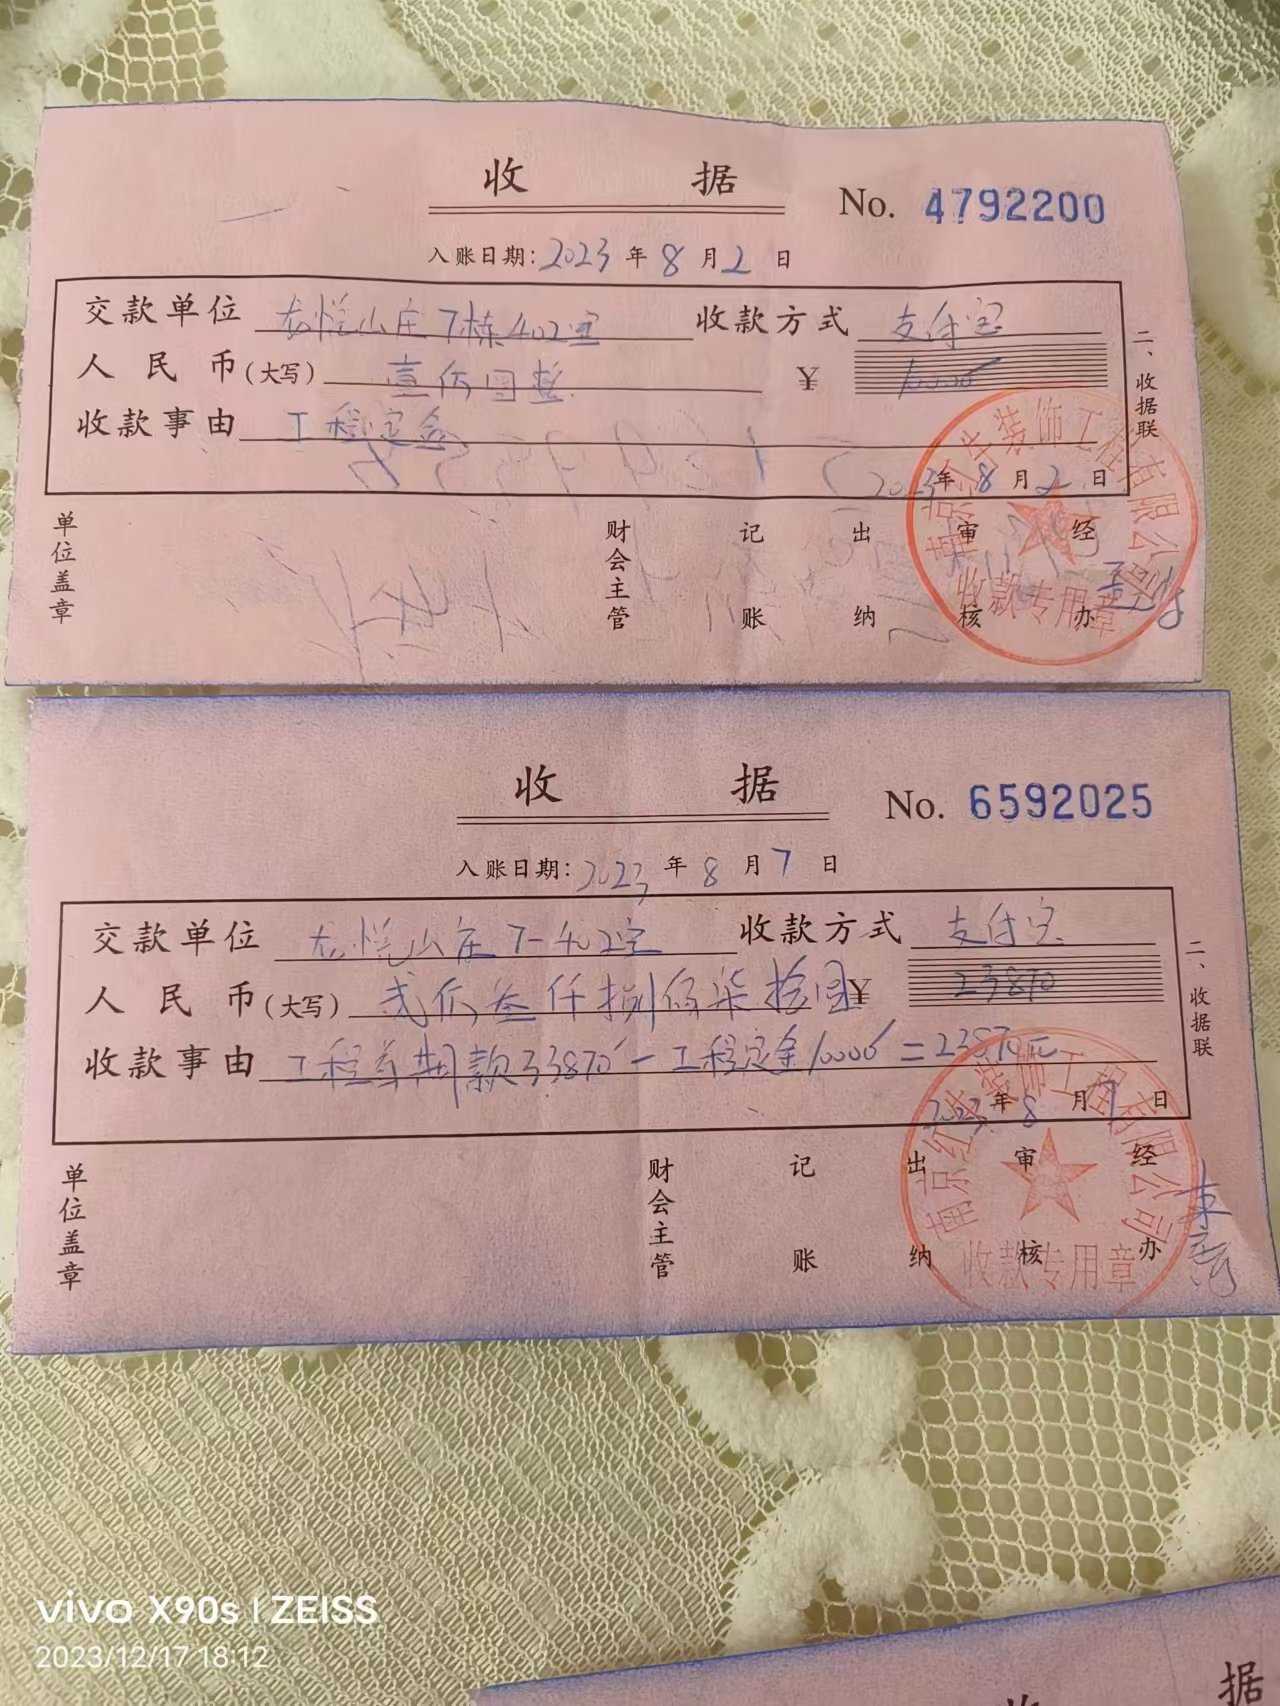 收 据
No. 4792200
入账日期：2023 年 8 月 2 日
交款单位 龙悦山庄7栋402室 收款方式 支付宝
人民币（大写） 壹万圆整 ¥ 10000
收款事由 工程定金
2023年 8 月 2 日
二、收据联
单位盖章 财会主管 记账 出纳 审核 经办
装饰工程有限公司
收款专用章
收 据
No. 6592025
入账日期：2023 年 8 月 7 日
交款单位 龙悦山庄7-402室 收款方式 支付宝
人民币（大写） 贰万叁仟捌佰柒拾圆 ¥ 23870
收款事由 工程首期款33870-工程定金10000=23870元
2023年 8 月 7 日
二、收据联
单位盖章 财会主管 记账 出纳 审核 经办
南京红牛装饰工程有限公司
收款专用章
据
vivo X90s | ZEISS
2023/12/17 18:12